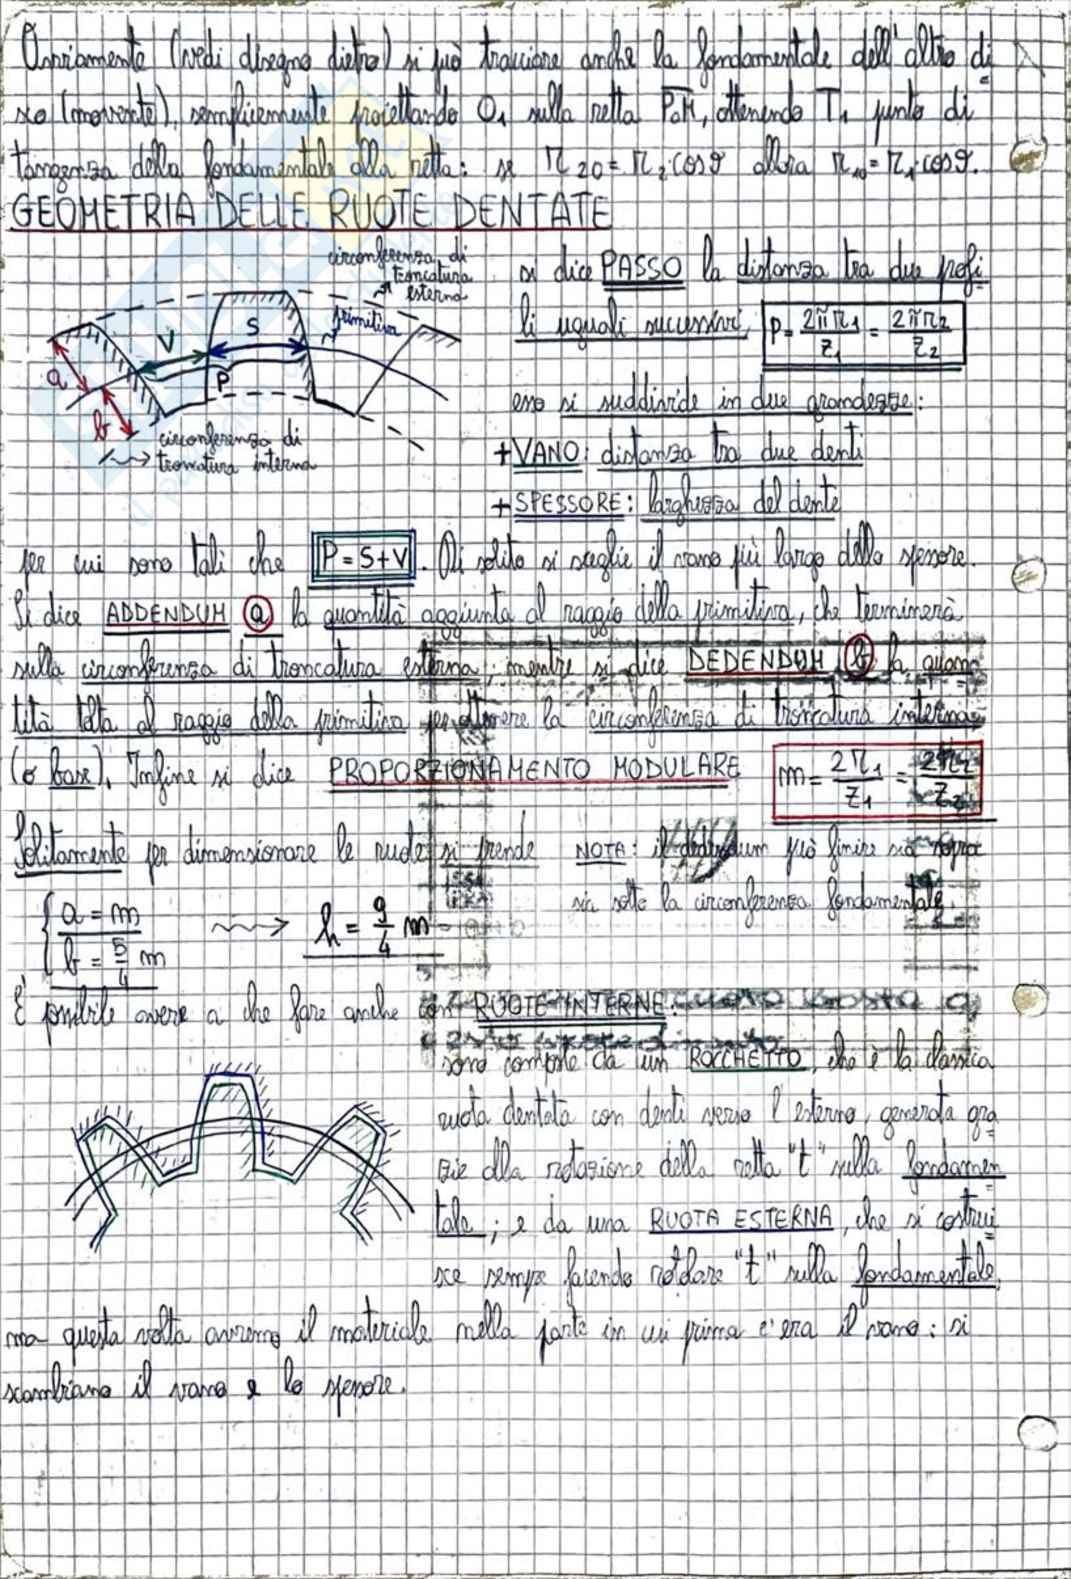 Ovviamente (vedi disegno dietro) si può tracciare anche la fondamentale dell'altro di
sco (movente), semplicemente proiettando O₁ sulla retta P₀M, ottenendo T₁ punto di
tangenza della fondamentale alla retta: se r₂₀ = r₂·cosϑ allora r₁₀ = r₁·cosϑ.
GEOMETRIA DELLE RUOTE DENTATE
circonferenza di
troncatura
esterna
primitiva
V
S
P
a
b
circonferenza di
troncatura interna
si dice PASSO la distanza tra due profi
li uguali successivi, P = 2πr₁/z₁ = 2πr₂/z₂
esso si suddivide in due grandezze:
+ VANO: distanza tra due denti
+ SPESSORE: larghezza del dente
per cui sono tali che P = S+V. Di solito si sceglie il vano più largo dello spessore.
Si dice ADDENDUM a la quantità aggiunta al raggio della primitiva, che terminerà
sulla circonferenza di troncatura esterna; mentre si dice DEDENDUM b la quan
tità tolta al raggio della primitiva per ottenere la circonferenza di troncatura interna
(o base). Infine si dice PROPORZIONAMENTO MODULARE m = 2r₁/z₁ = 2r₂/z₂
Solitamente per dimensionare le ruote si prende
NOTA: il dedendum può finire sia sopra
sia sotto la circonferenza fondamentale.
a = m
b = 5/4 m
h = 9/4 m
È possibile avere a che fare anche con RUOTE INTERNE:
sono composte da un ROCCHETTO, che è la classica
ruota dentata con denti verso l'esterno, generata gra
zie alla rotazione della retta "t" sulla fondamen
tale; e da una RUOTA ESTERNA, che si costrui
sce sempre facendo rotolare "t" sulla fondamentale,
ma questa volta avremo il materiale nella parte in cui prima c'era il vano: si
scambiano il vano e lo spessore.